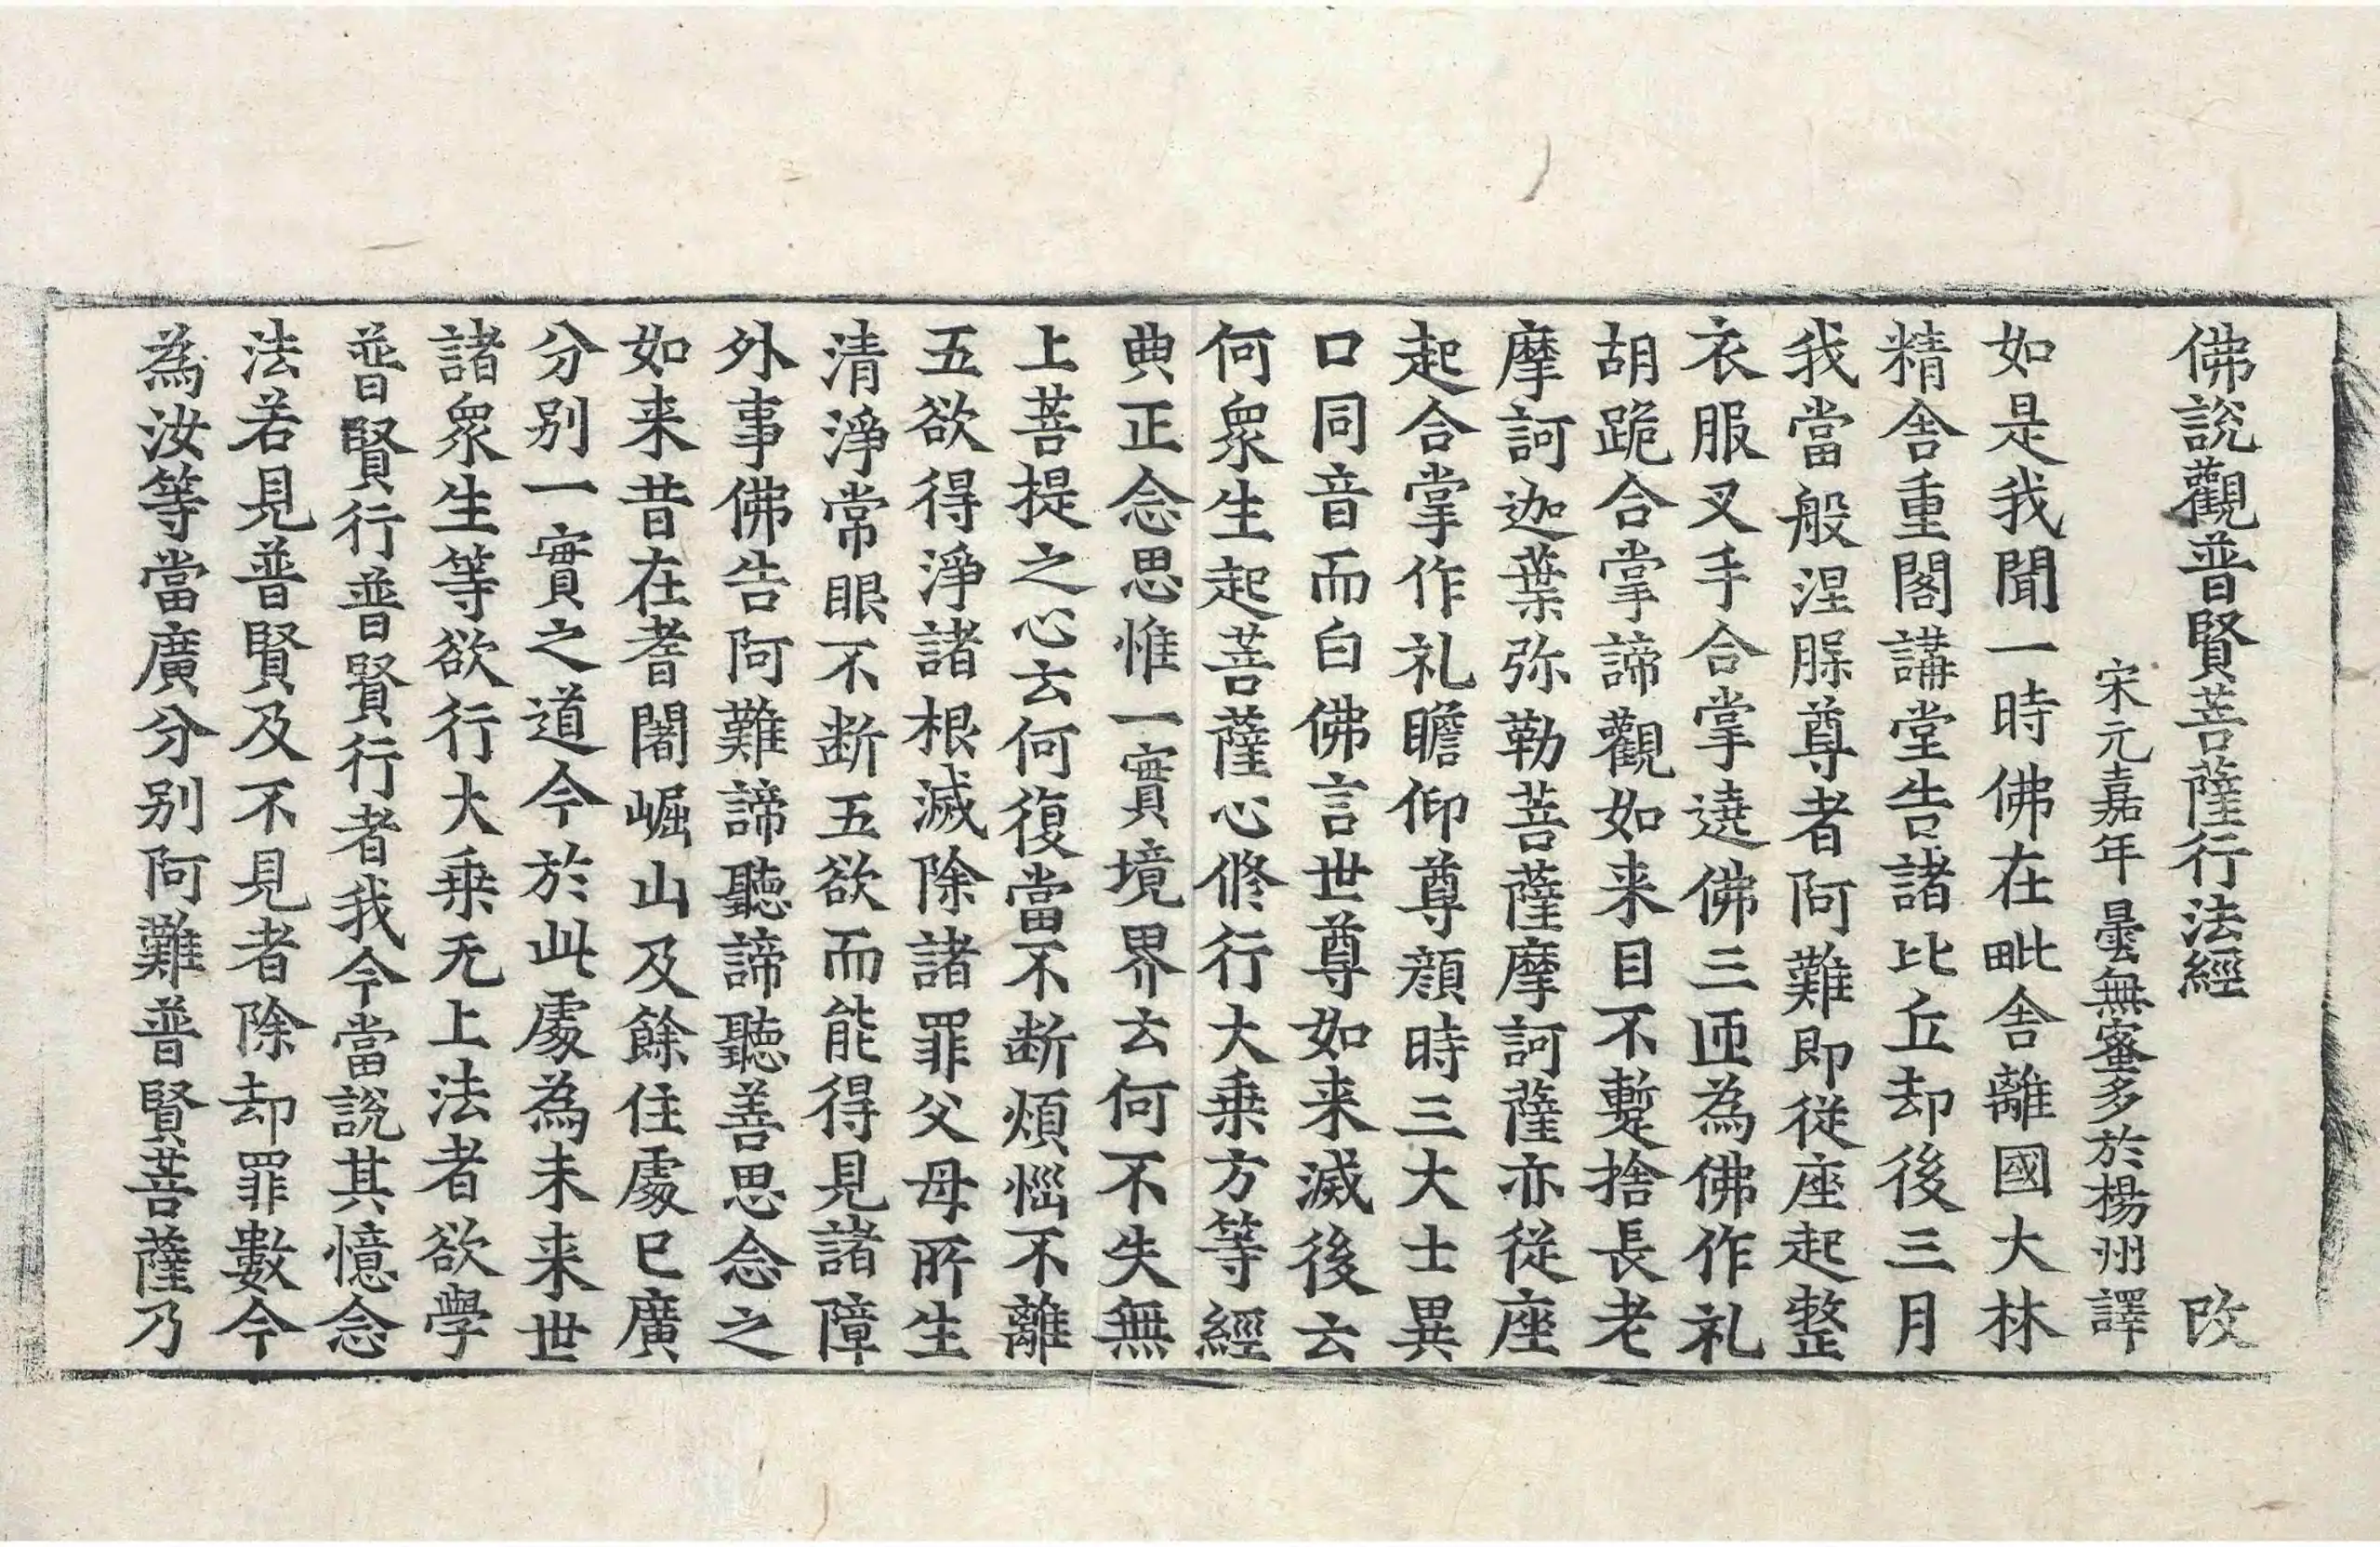 佛說觀普賢菩薩行法經 改
宋元嘉年曇無蜜多於楊州譯
如是我聞一時佛在毗舍離國大林
精舍重閣講堂告諸比丘却後三月
我當般涅脲尊者阿難即從座起整
衣服叉手合掌遶佛三匝為佛作礼
胡跪合掌諦觀如来目不暫捨長老
摩訶迦葉弥勒菩薩摩訶薩亦從座
起合掌作礼瞻仰尊顏時三大士異
口同音而白佛言世尊如来滅後云
何衆生起菩薩心修行大乗方等經
典正念思惟一實境界云何不失無
上菩提之心云何復當不断煩惱不離
五欲得淨諸根滅除諸罪父母所生
清淨常眼不断五欲而能得見諸障
外事佛告阿難諦聽諦聽善思念之
如来昔在耆闍崛山及餘住處已廣
分別一實之道今於此處為未来世
諸衆生等欲行大乗无上法者欲學
普賢行普賢行者我今當說其憶念
法若見普賢及不見者除却罪數今
為汝等當廣分別阿難普賢菩薩乃